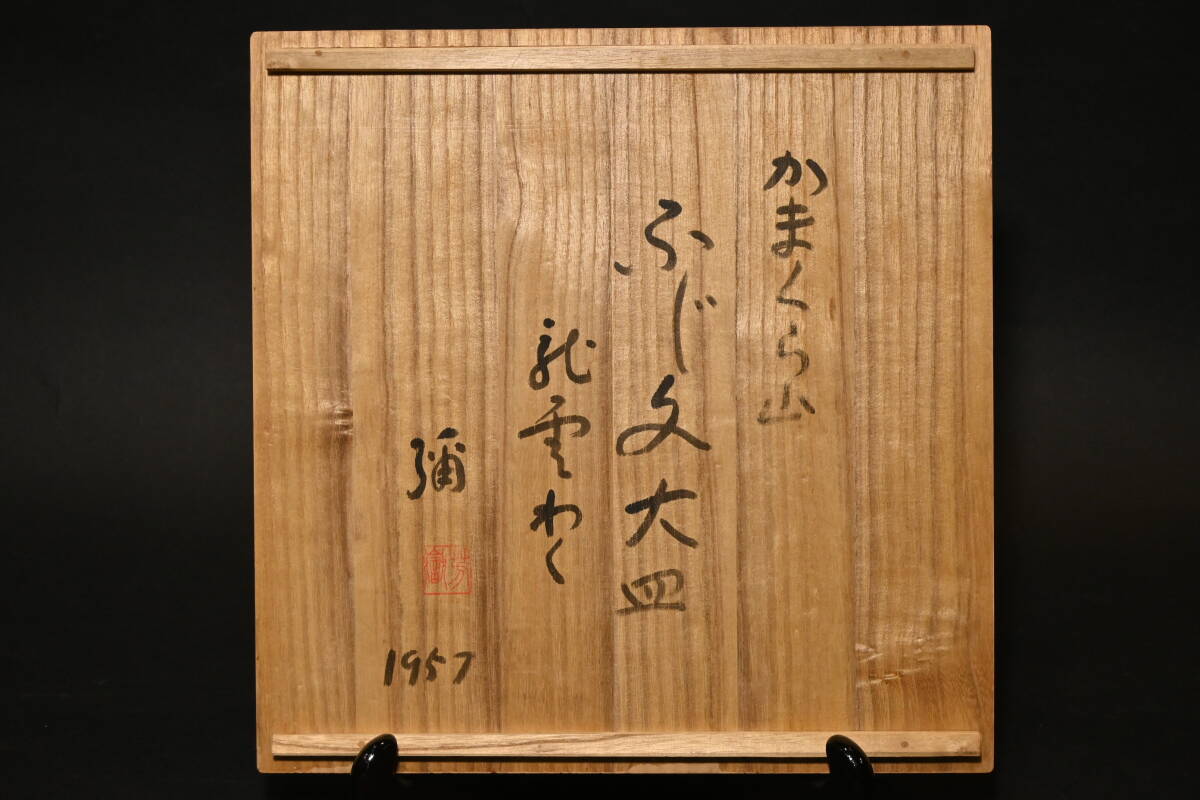 かまくら山
ふじ文大皿
龍雲わく
彌
1957